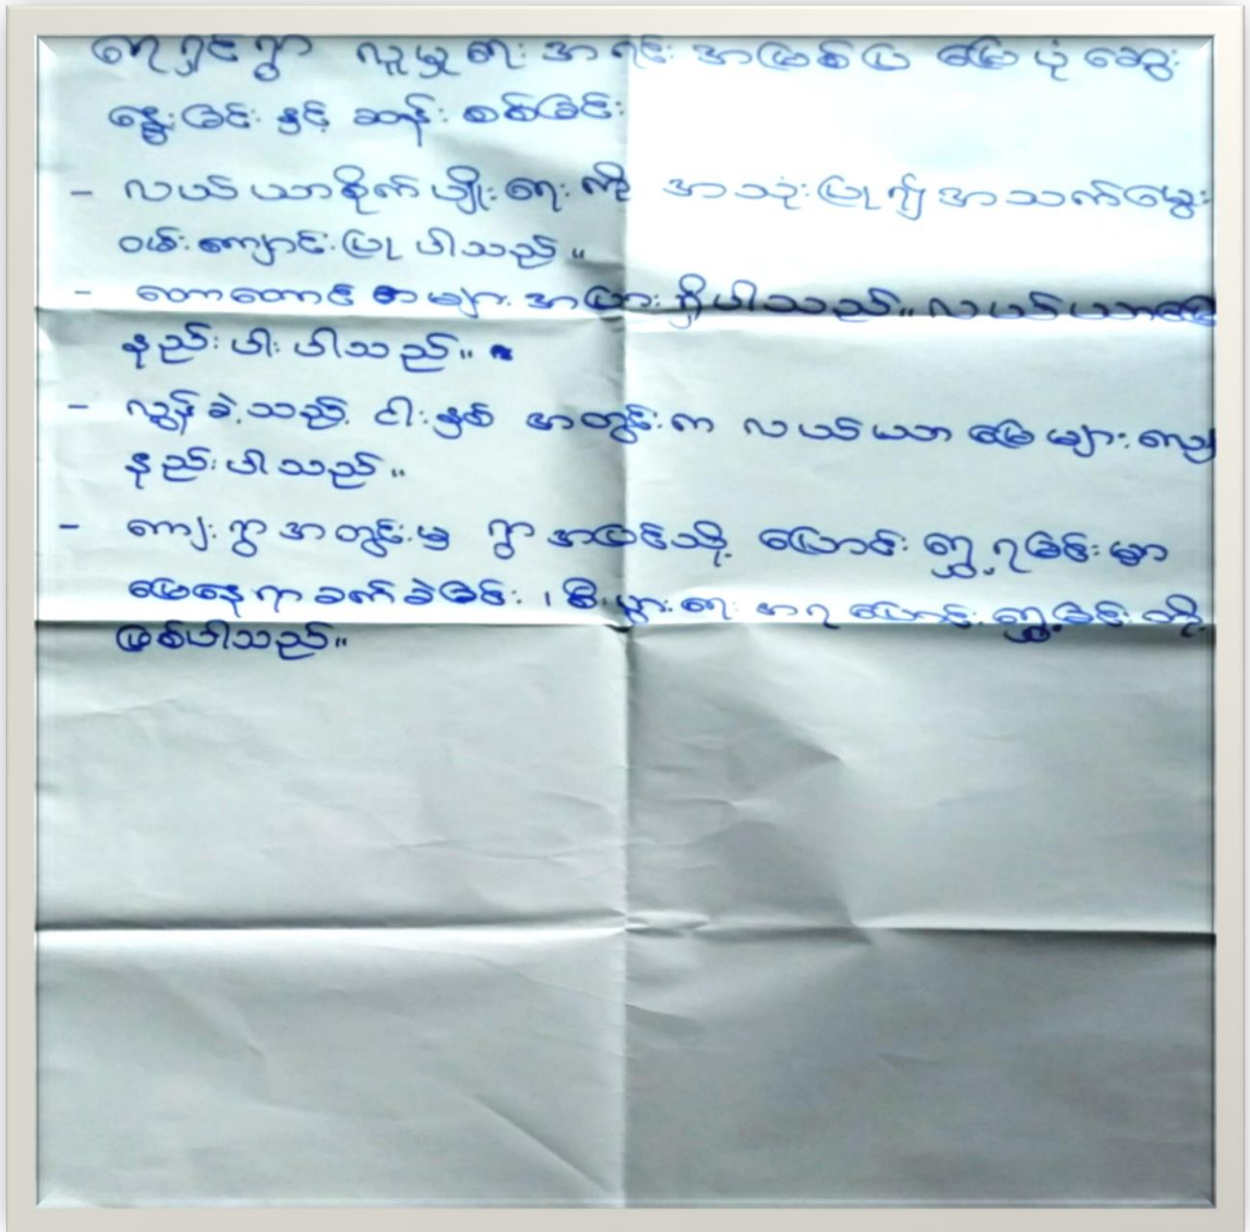 ရေရှင်ရွာ လူမှုရေး အရင်း အမြစ်ပြ မြေပုံ ဆွေး
နွေးခြင်း နှင့် ဆန်းစစ်ခြင်း
- လယ်ယာစိုက်ပျိုးရေးကို အသုံးပြု၍ အသက်မွေး
ဝမ်းကျောင်းပြုပါသည်။
- တောတောင် များ အများ ရှိပါသည်။ လယ်ယာမြေ
နည်းပါးပါသည်။
- လွန်ခဲ့သည့် ငါးနှစ် အတွင်းက လယ်ယာ မြေများ
နည်းပါသည်။
- ကျေးရွာအတွင်းမှ ရွာအပြင်သို့ ပြောင်းရွှေ့ရခြင်းမှာ
မြေနေရာခက်ခဲခြင်း ၊ စီးပွားရေး အရ ပြောင်းရွှေ့ခြင်း တို့
ဖြစ်ပါသည်။